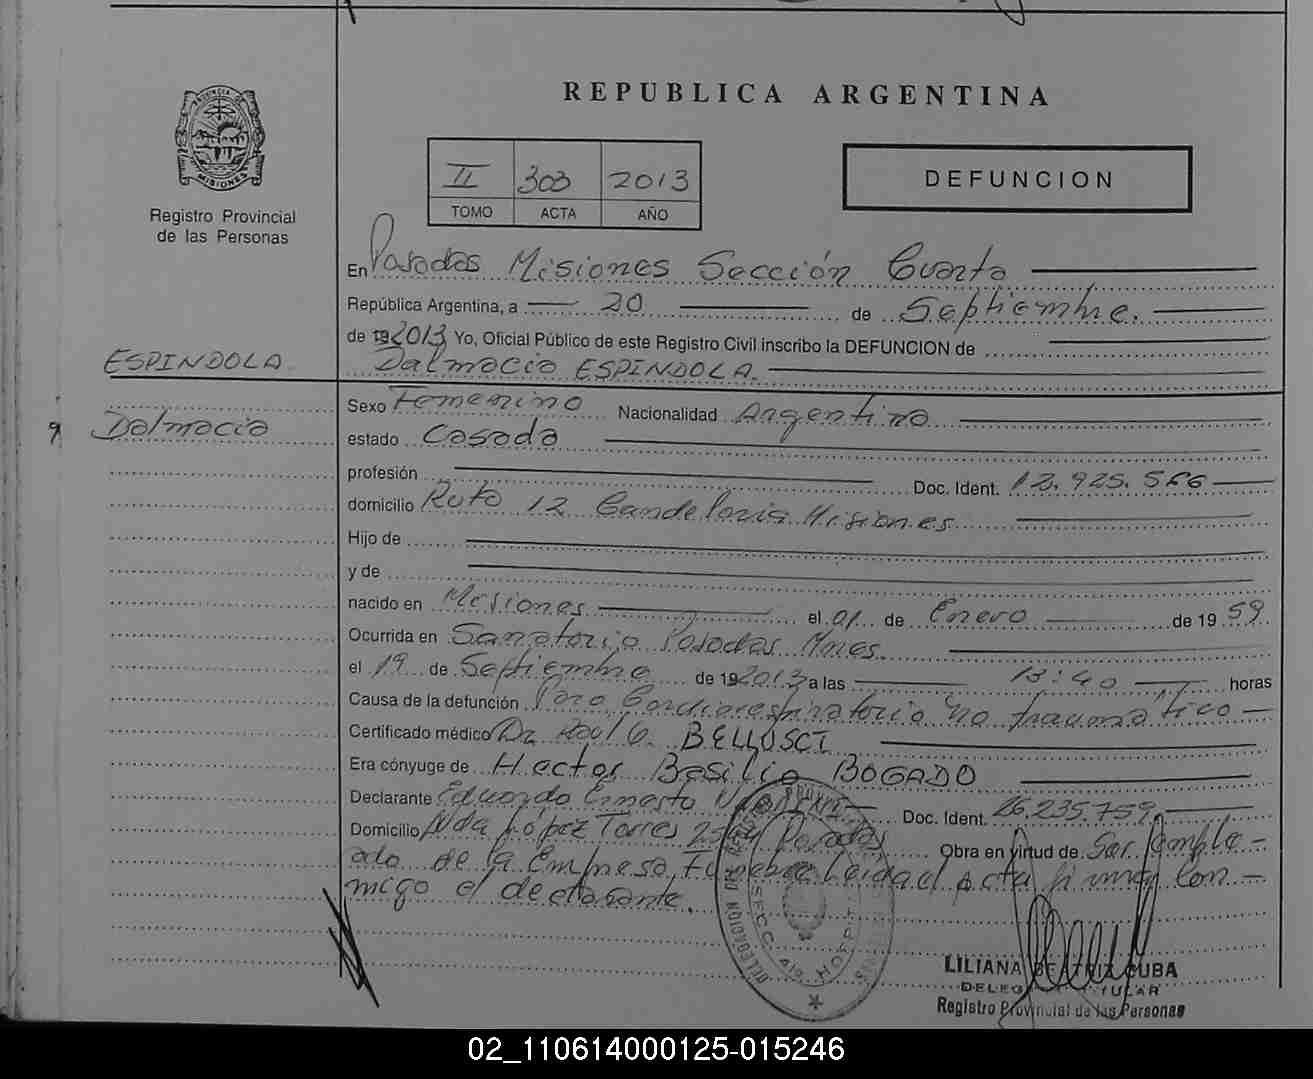 REPUBLICA ARGENTINA
PROVINCIA DE
MISIONES
Registro Provincial
de las Personas
II 303 2013
TOMO ACTA AÑO
DEFUNCION
En Posadas Misiones Sección Cuarta
República Argentina, a 20 de Septiembre.
de 192013 Yo, Oficial Público de este Registro Civil inscribo la DEFUNCION de
ESPINDOLA
Dalmacia ESPINDOLA.
Dalmacia
Sexo Femenino Nacionalidad Argentina
estado Casada
profesión Doc. Ident. 12.925.566
domicilio Ruta 12 Candelaria Misiones
Hijo de
y de
nacido en Misiones el 01 de Enero de 1959
Ocurrida en Sanatorio Posadas Mnes
el 19 de Septiembre de 192013 a las 13:40 horas
Causa de la defunción Paro Cardiorespiratorio no traumático
Certificado médico Dr Raul G. BELLUSCI
Era cónyuge de Hector Basilio BOGADO
Declarante Eduardo Ernesto Doc. Ident. 26.235.759
Domicilio Avda López Torres Posadas Obra en virtud de Ser Emple-
ado de la Empresa Funebre Leida el Acta firma con-
migo el declarante.
DELEGACION DEL REGISTRO PROVINCIAL
SECC. 4ta. HOSPITAL
LILIANA BEATRIZ CUBA
DELEGADA TITULAR
Registro Provincial de las Personas
02_110614000125-015246